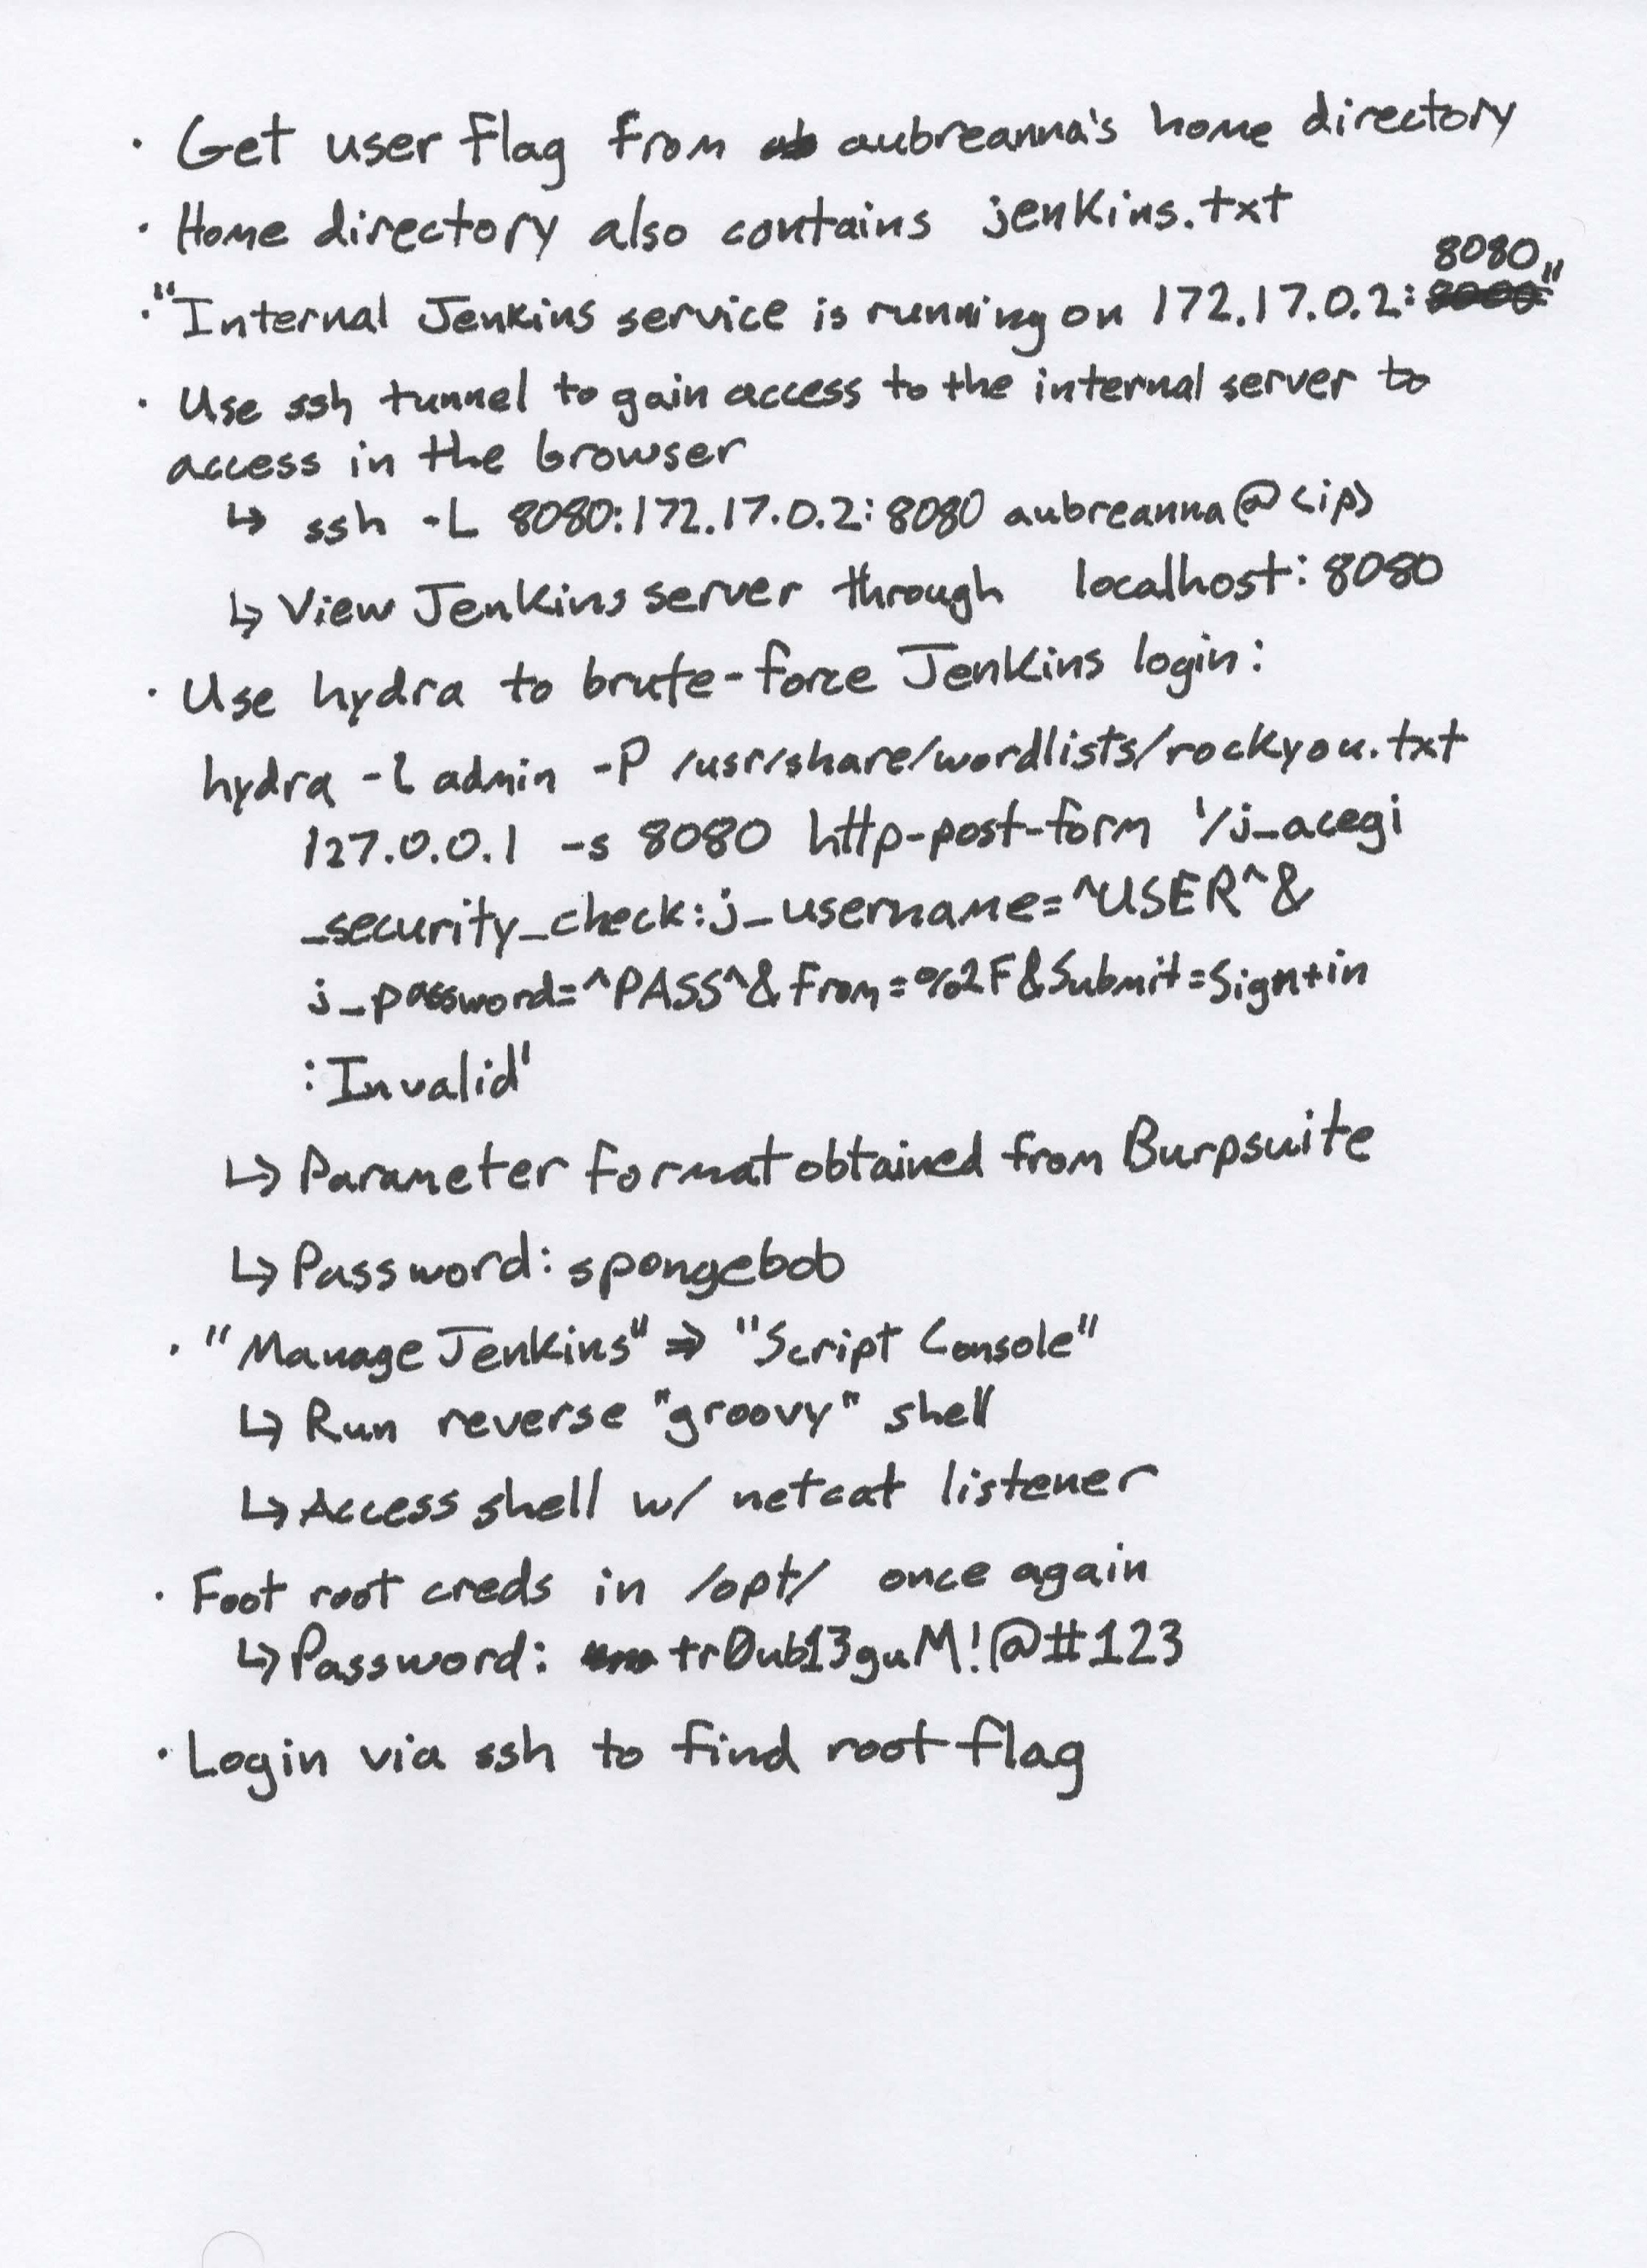 · Get user flag from aubreanna's home directory
· Home directory also contains jenkins.txt
8080
· "Internal Jenkins service is running on 172.17.0.2:"
· Use ssh tunnel to gain access to the internal server to
access in the browser
↳ ssh -L 8080:172.17.0.2:8080 aubreanna@<ip>
↳ View Jenkins server through localhost:8080
· Use hydra to brute-force Jenkins login:
hydra -l admin -P /usr/share/wordlists/rockyou.txt
127.0.0.1 -s 8080 http-post-form '/j_acegi
_security_check:j_username=^USER^&
j_password=^PASS^&from=%2F&Submit=Sign+in
:Invalid'
↳ Parameter format obtained from Burpsuite
↳ Password: spongebob
· "Manage Jenkins" ⇒ "Script Console"
↳ Run reverse "groovy" shell
↳ Access shell w/ netcat listener
· Foot root creds in /opt/ once again
↳ Password: tr0ub13guM!@#123
· Login via ssh to find root flag